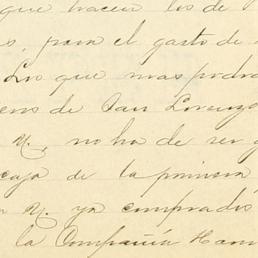 que hacen los de
para el gasto de
Los que mas podra
de San Lorenzo
no ha de ser
caja de la primera
y ya comprados
la Compañia Ham